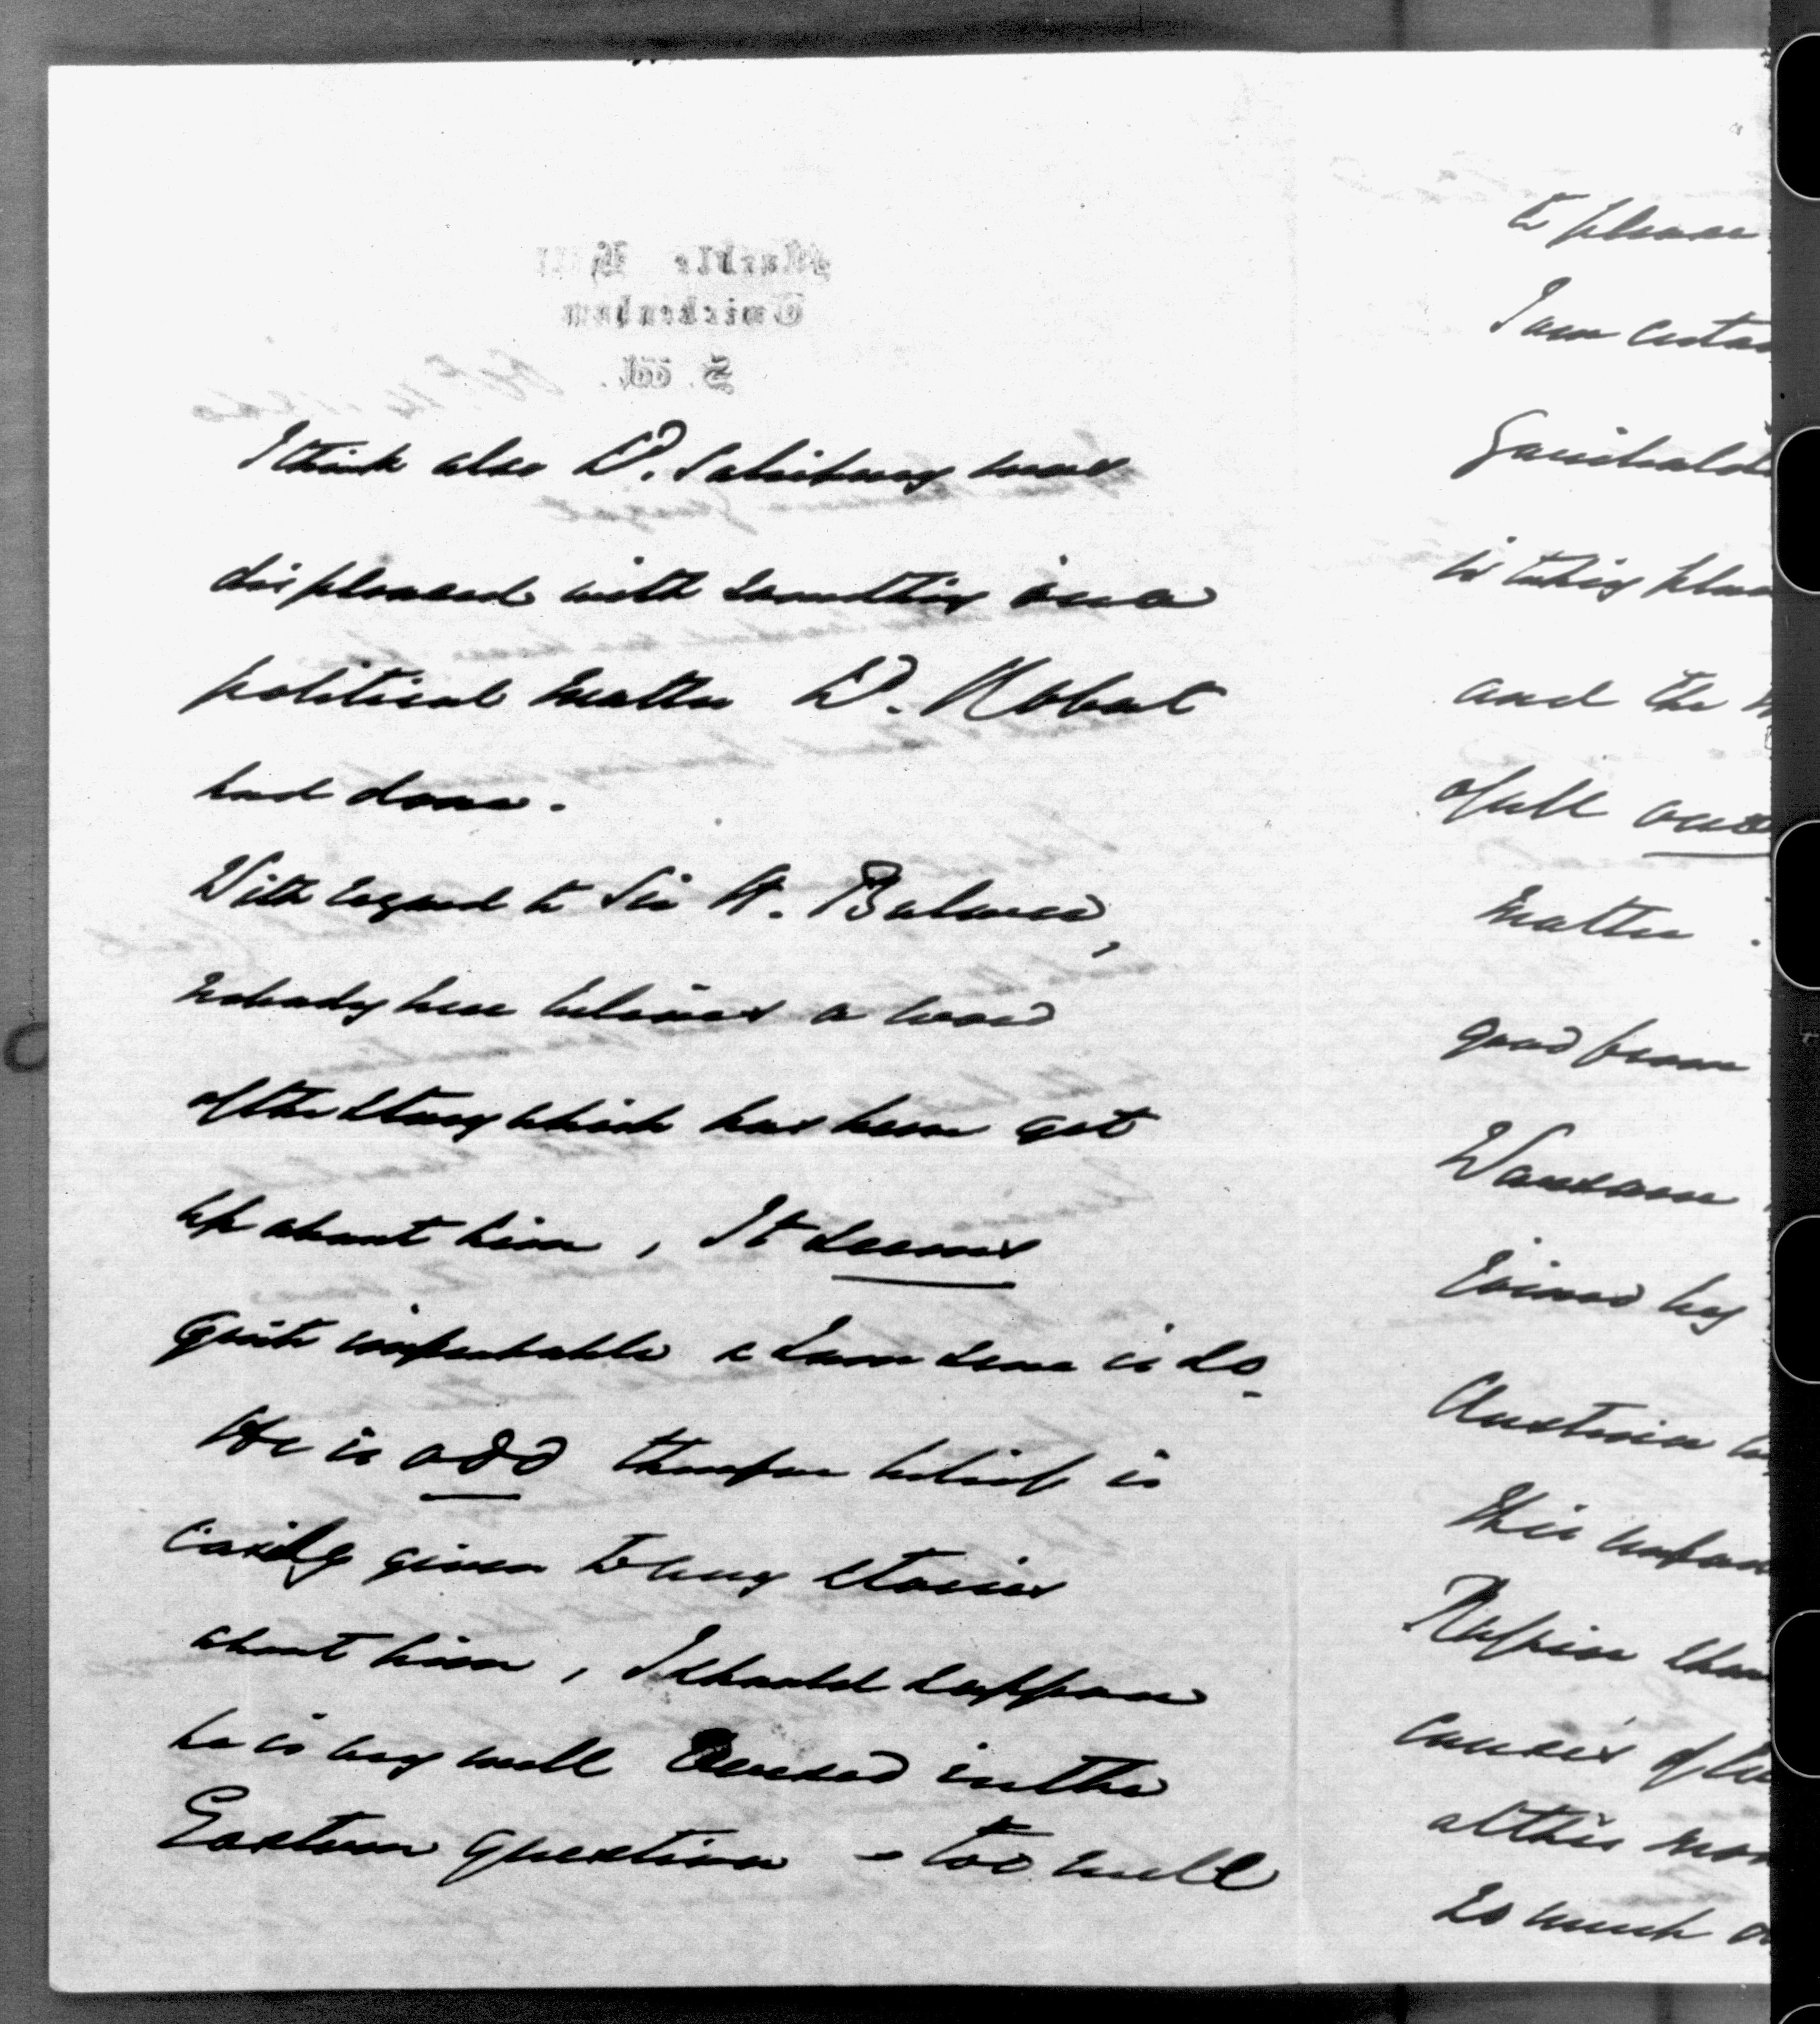 I think also Ld. Salisbury was
displeased with something in a
political matter Ld. Robert
had done.
With regard to Sir H. Bulwer,
nobody here believes a word
of the story which has been got
up about him, It seems
quite improbable & I am sure is so.
He is odd therefore belief is
easily given to any stories
about him, I should suppose
he is very well versed in the
Eastern question - too well
to please
I am certa
Garibaldi
is taking pla
and the
of all
matter.
good from
Warsaw
Evinced by
Austria
this unfor
Russia than
causes of
at this mo
so much